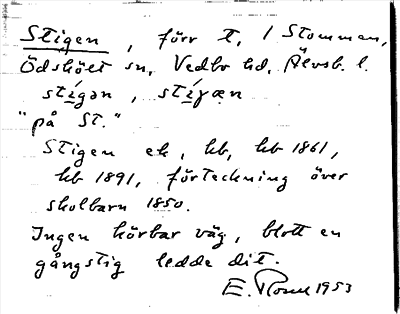 Stigen, förr t. 1 Stommen,
Ödskölt sn, Vedbo hd, Älvsb. l.
stígən, stíγæn
"på St."
Stigen ek, kb, kb 1861,
kb 1891, förteckning över
skolbarn 1850.
Ingen körbar väg, blott en
gångstig ledde dit.
E. Rosell 1953